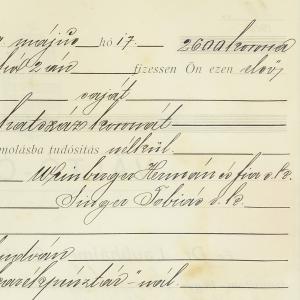 május hó 17. 2600 korona
fizessen Ön ezen első
saját
hatszáz koronát
tudósitás nélkül.
Weinberger Hermán és fia s.k.
Singer Tobiás s.k.
takarékpénztár"-nál.